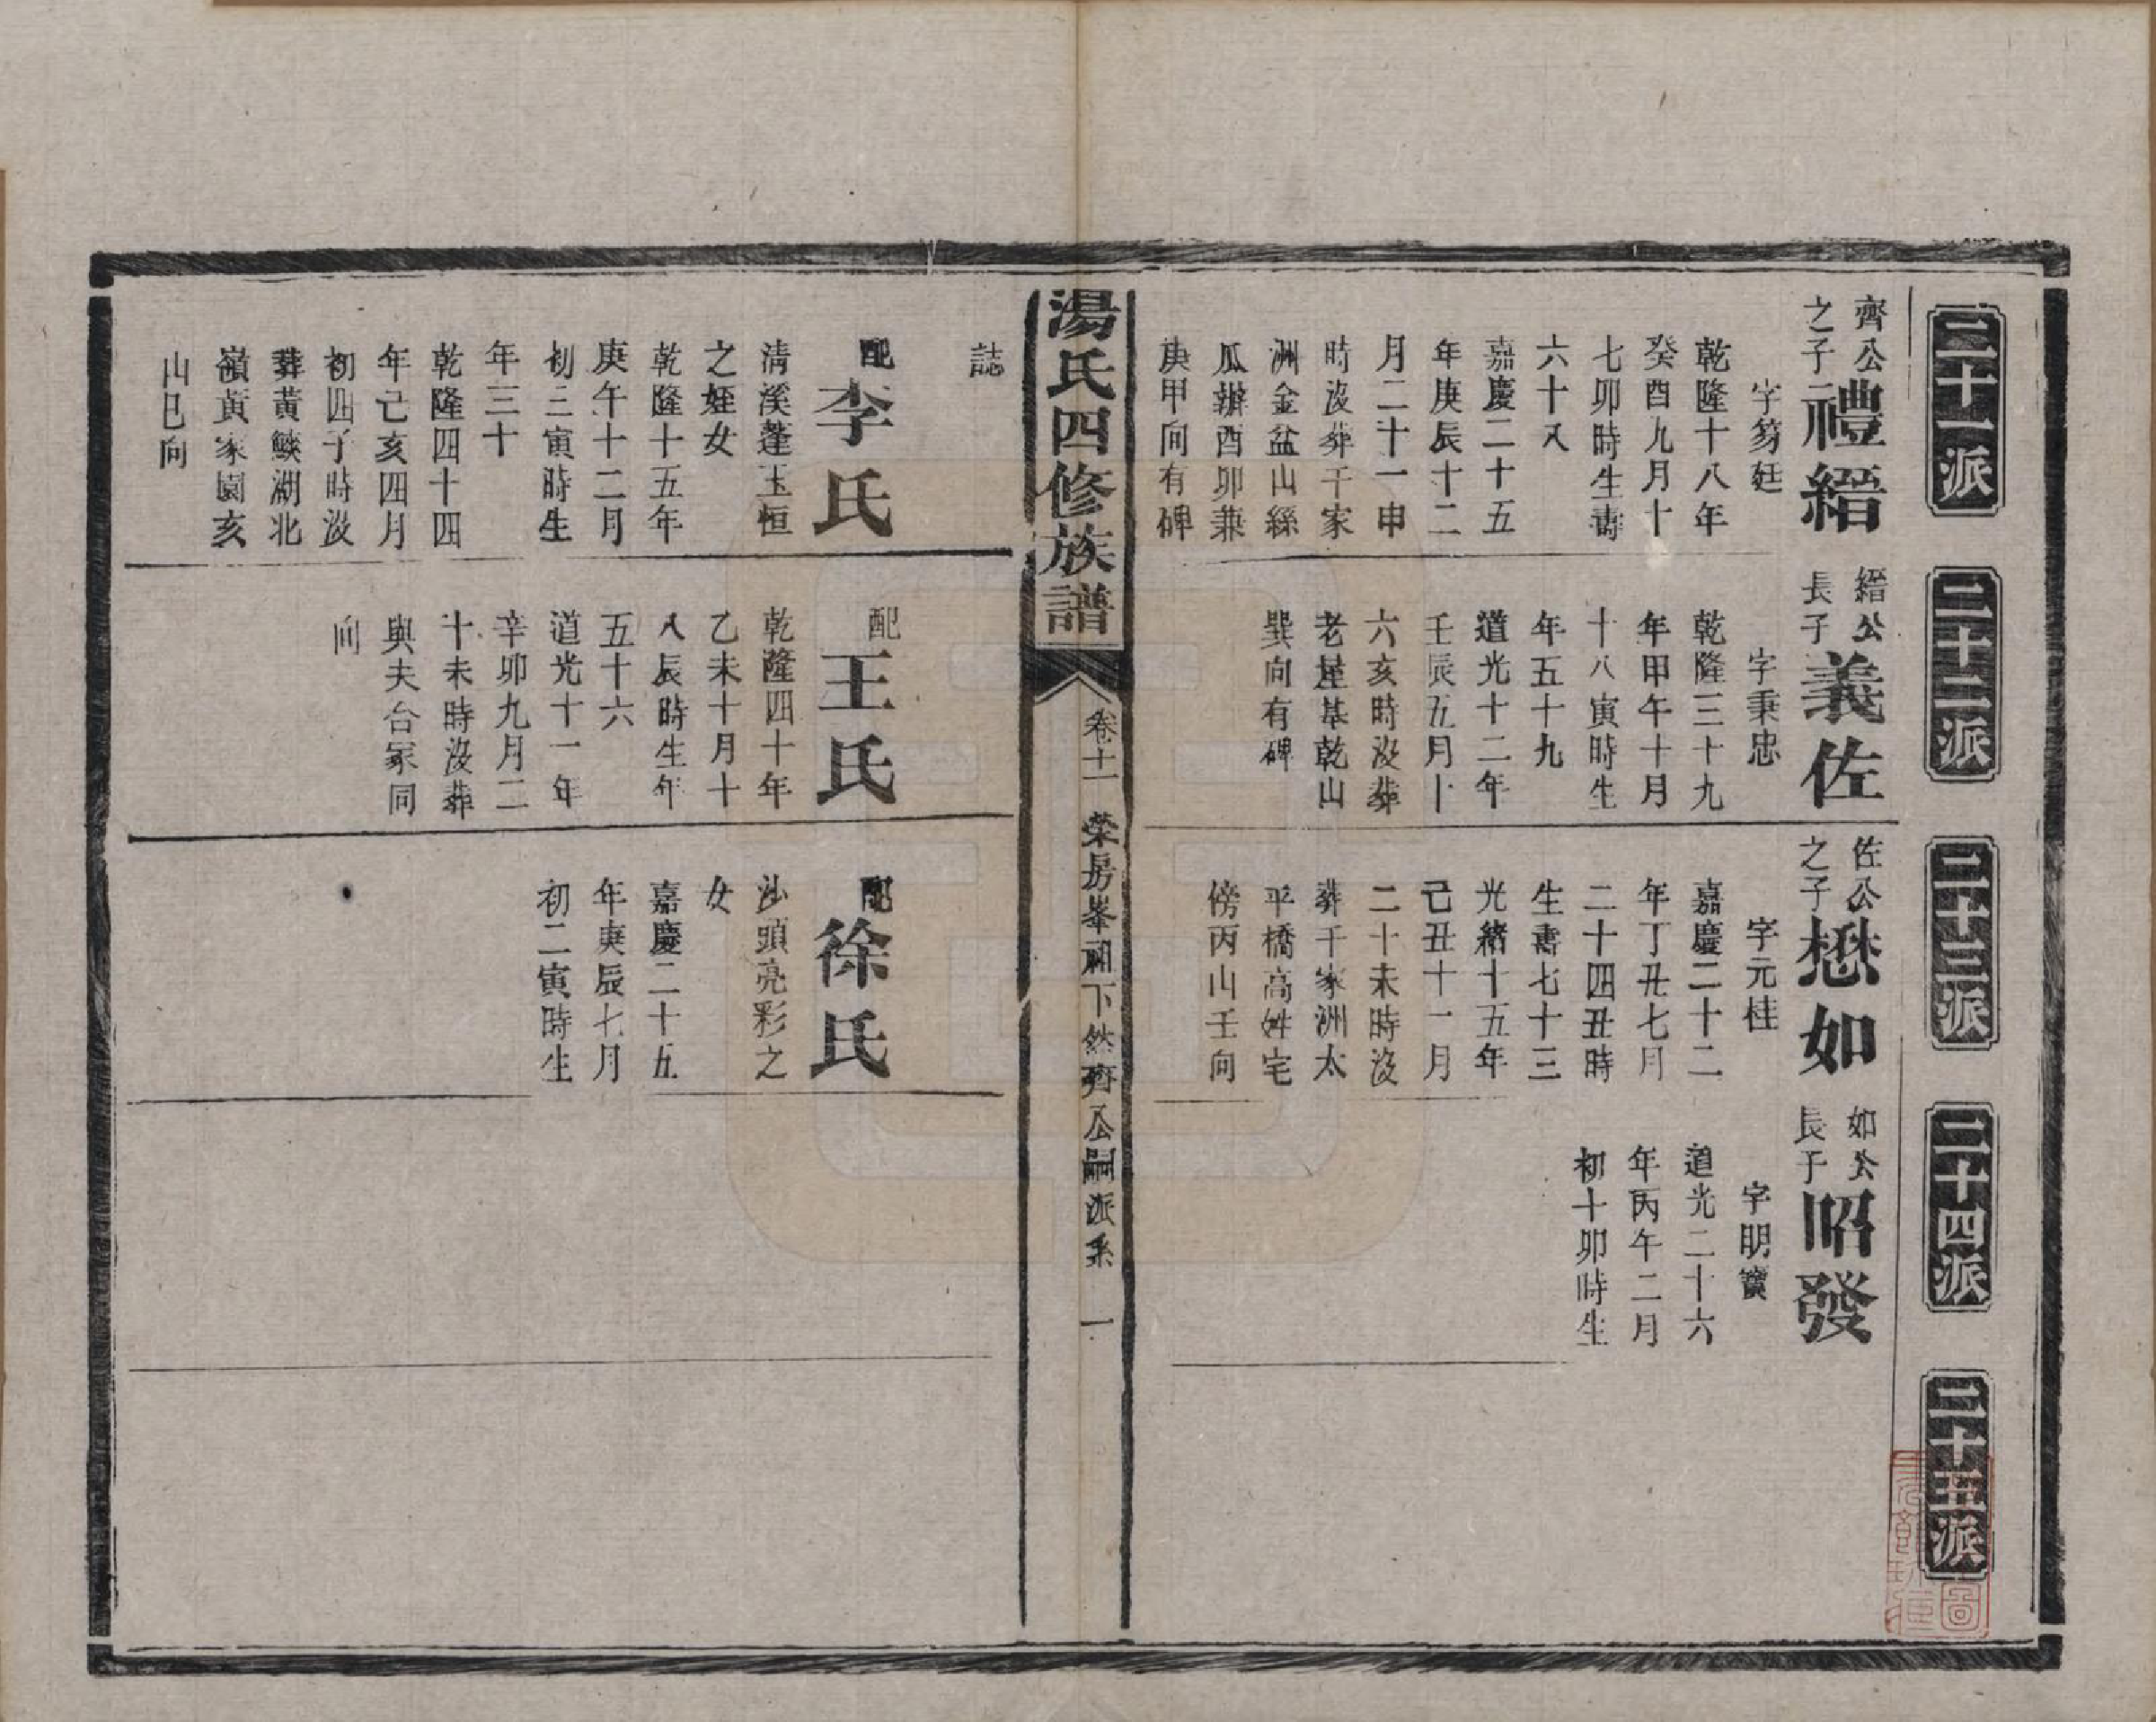 二十一派
二十二派
二十三派
二十四派
二十五派
齊公
之子
禮縉
字笏廷
乾隆十八年
癸酉九月十
七卯時生壽
六十八
嘉慶二十五
年庚辰十二
月二十一申
時沒葬千家
洲金盆山絲
瓜辦酉卯兼
庚甲向有碑
誌
配
李氏
清溪蓬玉恒
之姪女
乾隆十五年
庚午十二月
初三寅時生
年三十
乾隆四十四
年己亥四月
初四子時沒
葬黃鱇湖北
嶺黃家園亥
山巳向
縉公
長子
義佐
字秉忠
乾隆三十九
年甲午十月
十八寅時生
年五十九
道光十二年
壬辰五月十
六亥時沒葬
老屋基乾山
巽向有碑
配
王氏
乾隆四十年
乙未十月十
八辰時生年
五十六
道光十一年
辛卯九月二
十未時沒葬
與夫合冢同
向
佐公
之子
懋如
字元桂
嘉慶二十二
年丁丑七月
二十四丑時
生壽七十三
光緒十五年
己丑十一月
二十未時沒
葬千家洲太
平橋高姓宅
傍丙山壬向
配
徐氏
沙頭亮彩之
女
嘉慶二十五
年庚辰七月
初二寅時生
如公
長子
昭發
字明寶
道光二十六
年丙午二月
初十卯時生
湯氏四修族譜
卷十一
榮房峯祖下然齊公嗣派系
一